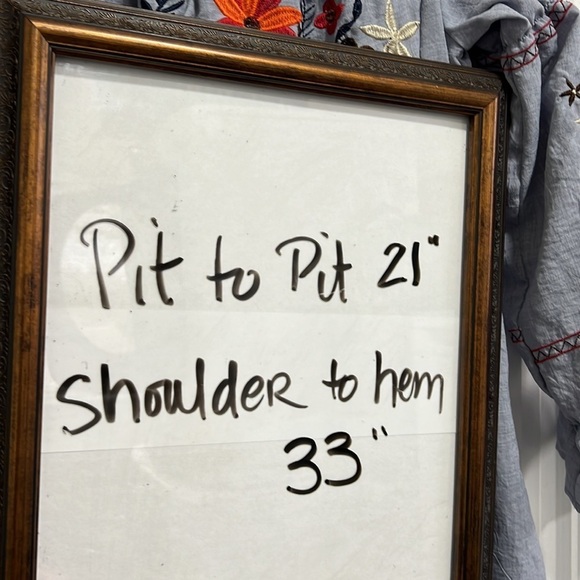 Pit to Pit 21"
Shoulder to hem
33"